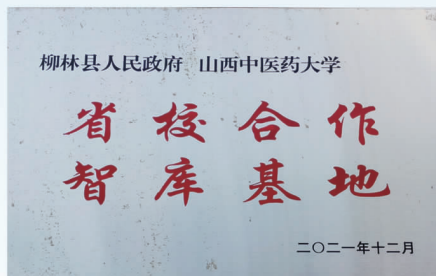 柳林县人民政府 山西中医药大学
省校合作
智库基地
二〇二一年十二月